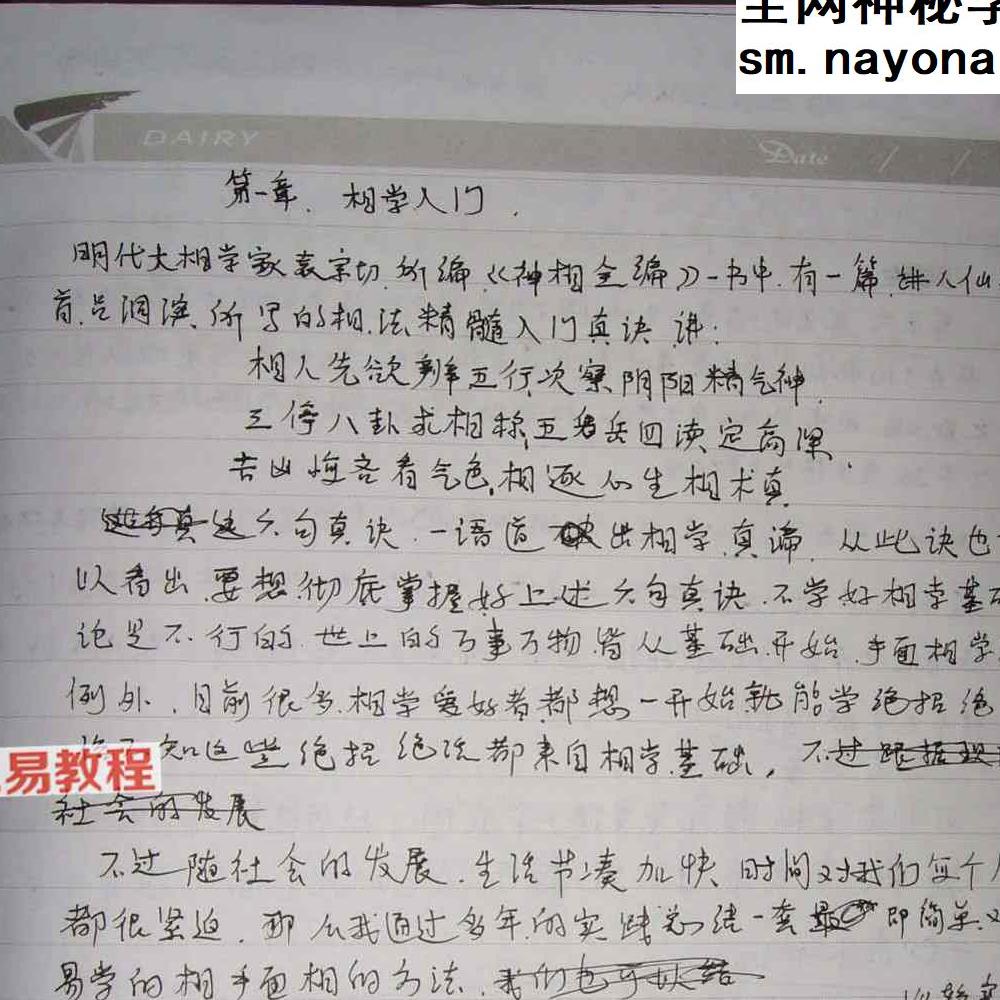 全网神秘学
sm.nayona
DAIRY
Date / /
第一章. 相学入门.
明代大相学家袁宗切所编《神相全编》一书中.有一篇.讲人仙
首.吕洞滨.所写的相.法精髓入门真诀 讲:
相人先欲辨五行次察阴阳精气神.
三停八卦求相称.五岳四渎定高深.
吉凶悔吝看气色.相逐心生相术真
这六句真诀.一语道出相学真谛.从此诀也
以看出.要想彻底掌握好上述六句真诀.不学好相学基
论是不行的.世上的万事万物皆从基础.开始.手面相学
例外.目前很多.相学爱好者都想一开始就能学绝招绝
知这些绝招绝活都来自相学基础,不过跟据现
易教程
社会的发展
不过随社会的发展.生活节凑加快 时间对我们每个人
都很紧迫.那么我通过多年的实践总结一套 即简单又
易学的相手面相的方法.我们也可以结